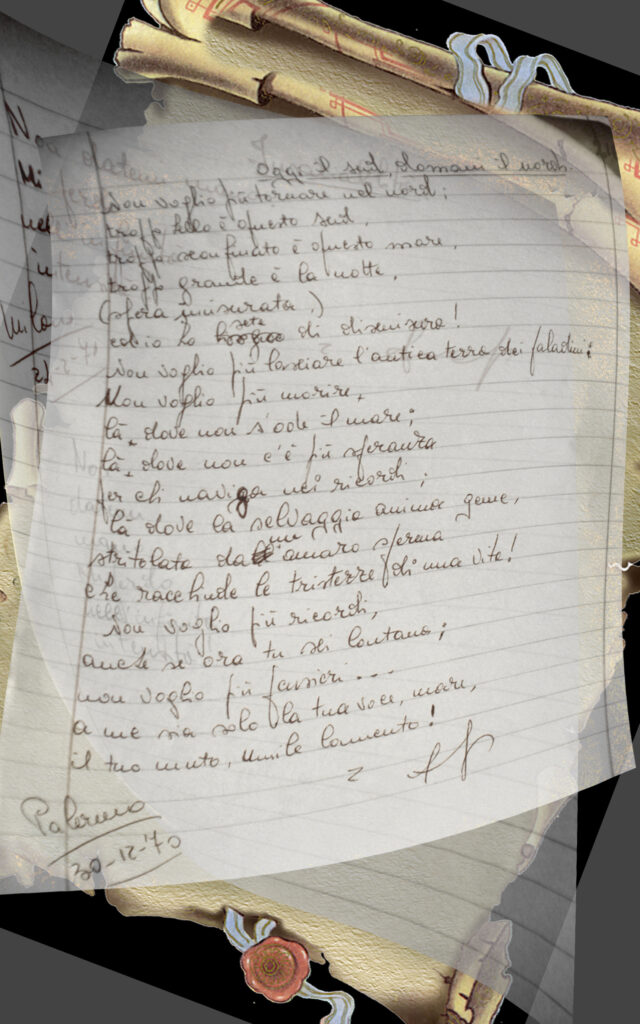 Oggi il sud, domani il nord
Non voglio più tornare nel nord;
troppo bello è questo sud,
troppo sconfinato è questo mare,
troppo grande è la notte,
(sfera smisurata,)
ed io ho sete di dismisura!
Non voglio più lasciare l'antica terra dei paladini:
Non voglio più morire,
là, dove non s'ode il mare;
là, dove non c'è più speranza
per chi naviga nei ricordi;
là dove la selvaggia anima geme,
stritolata da un amaro sperma
che racchiude le tristezze di una vita!
Non voglio più ricordi,
anche se ora tu sei lontana;
non voglio più pensieri...
a me sia solo la tua voce, mare,
il tuo muto, umile lamento!
Palermo
30-12-70
Non
Mi
Milano